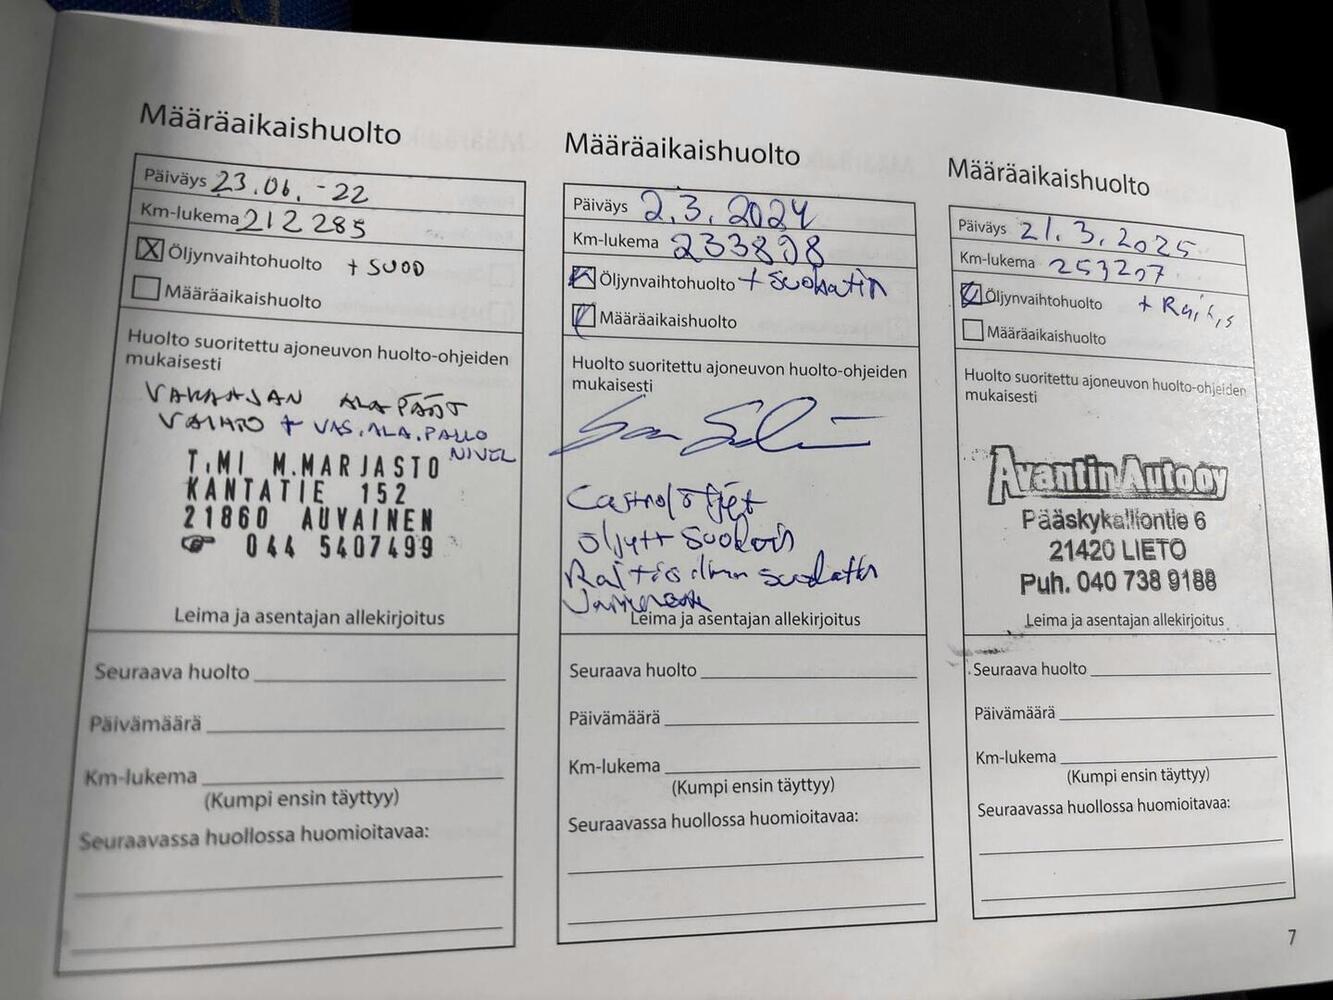 Määräaikaishuolto
Päiväys 23.06.-22
Km-lukema 212 285
Öljynvaihtohuolto + SUOD
Määräaikaishuolto
Huolto suoritettu ajoneuvon huolto-ohjeiden
mukaisesti
ALAPÄÄT
VAIHTO + VAS.ALA.PALLO
NIVEL
T:MI M.MARJASTO
KANTATIE 152
21860 AUVAINEN
☞ 044 5407499
Leima ja asentajan allekirjoitus
Seuraava huolto
Päivämäärä
Km-lukema
(Kumpi ensin täyttyy)
Seuraavassa huollossa huomioitavaa:
Määräaikaishuolto
Päiväys 2.3.2024
Km-lukema 233808
Öljynvaihtohuolto + suodatin
Määräaikaishuolto
Huolto suoritettu ajoneuvon huolto-ohjeiden
mukaisesti
Castrol öljyt
öljyn suodatin
Raitisilman suodatin
Leima ja asentajan allekirjoitus
Seuraava huolto
Päivämäärä
Km-lukema
(Kumpi ensin täyttyy)
Seuraavassa huollossa huomioitavaa:
Määräaikaishuolto
Päiväys 21.3.2025
Km-lukema 253207
Öljynvaihtohuolto + Raitis
Määräaikaishuolto
Huolto suoritettu ajoneuvon huolto-ohjeiden
mukaisesti
Avantin Auto oy
Pääskykalliontie 6
21420 LIETO
Puh. 040 738 9188
Leima ja asentajan allekirjoitus
Seuraava huolto
Päivämäärä
Km-lukema
(Kumpi ensin täyttyy)
Seuraavassa huollossa huomioitavaa:
7